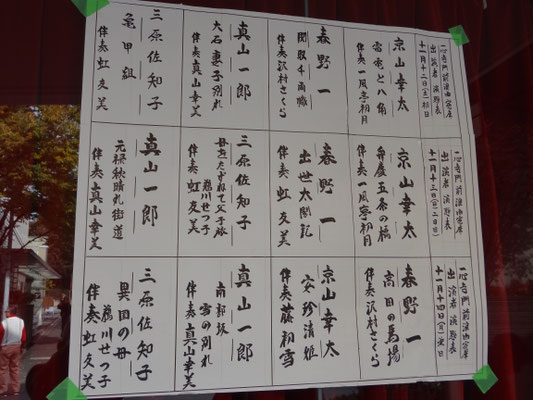 一心寺門前浪曲寄席
出演者 演題表
十一月十二日(土)初日
京山幸太
雷電と八角
伴奏 一風亭初月
春野一
関取千両幟
伴奏 沢村さくら
真山一郎
大石妻子別れ
伴奏 真山幸美
三原佐知子
亀甲組
伴奏 虹友美
一心寺門前浪曲寄席
出演者 演題表
十一月十三日(日)二日目
京山幸太
弁慶五条の橋
伴奏 一風亭初月
春野一
出世太閤記
伴奏 虹友美
三原佐知子
母をたずねて父子旅
藤川せつ子
伴奏 虹友美
真山一郎
元禄秋晴れ街道
伴奏 真山幸美
一心寺門前浪曲寄席
出演者 演題表
十一月十四日(月)楽日
春野一
高田の馬場
伴奏 沢村さくら
京山幸太
安珍清姫
伴奏 藤初雪
真山一郎
南部坂
雪の別れ
伴奏 真山幸美
三原佐知子
異国の母
藤川せつ子
伴奏 虹友美